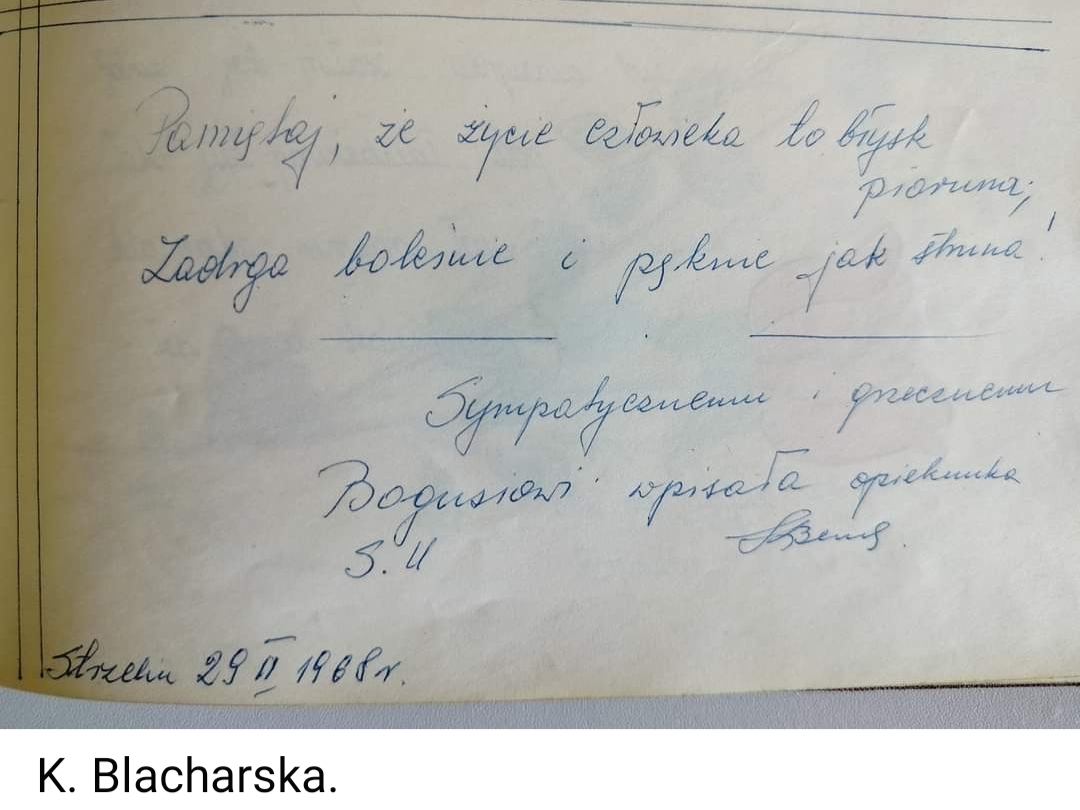 Pamiętaj, że życie człowieka to błysk
pioruna;
Zadrga boleśnie i pęknie jak struna!
Sympatycznemu i grzecznemu
Bogusiowi wpisała opiekunka
S. U
Strzelin 29 II 1968 r.
K. Blacharska.